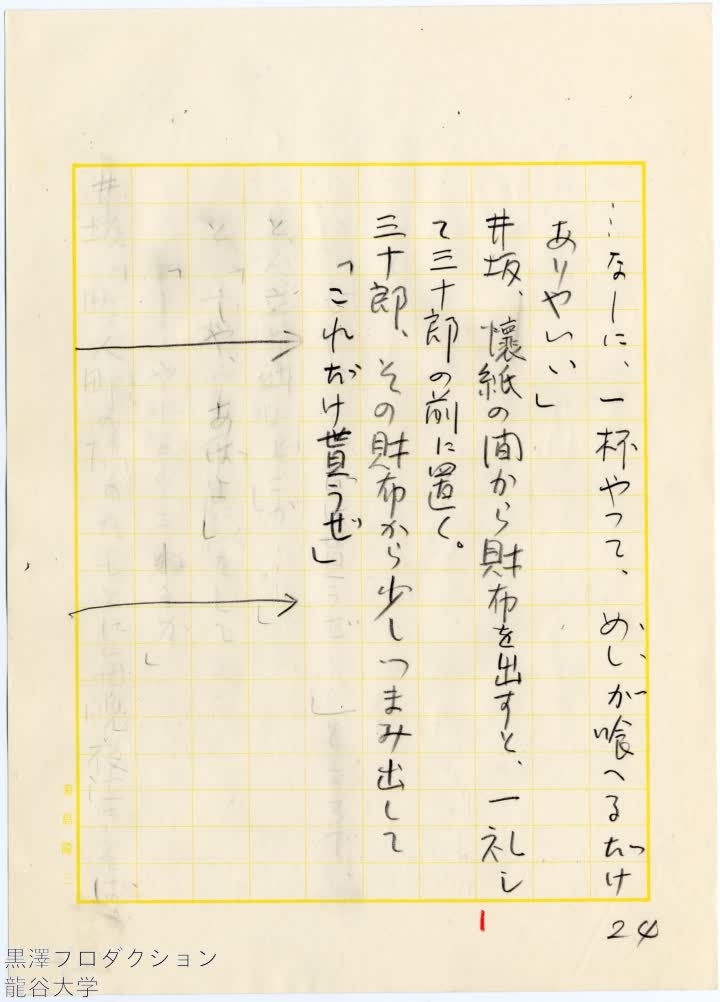 …なーに、一杯やって、めしが喰へるだけ
ありやいい」
井坂、懐紙の間から財布を出すと、一礼し
て三十郎の前に置く。
三十郎、その財布から少しつまみ出して
「これだけ貰うぜ」
24
1
黒澤フロダクション
龍谷大学